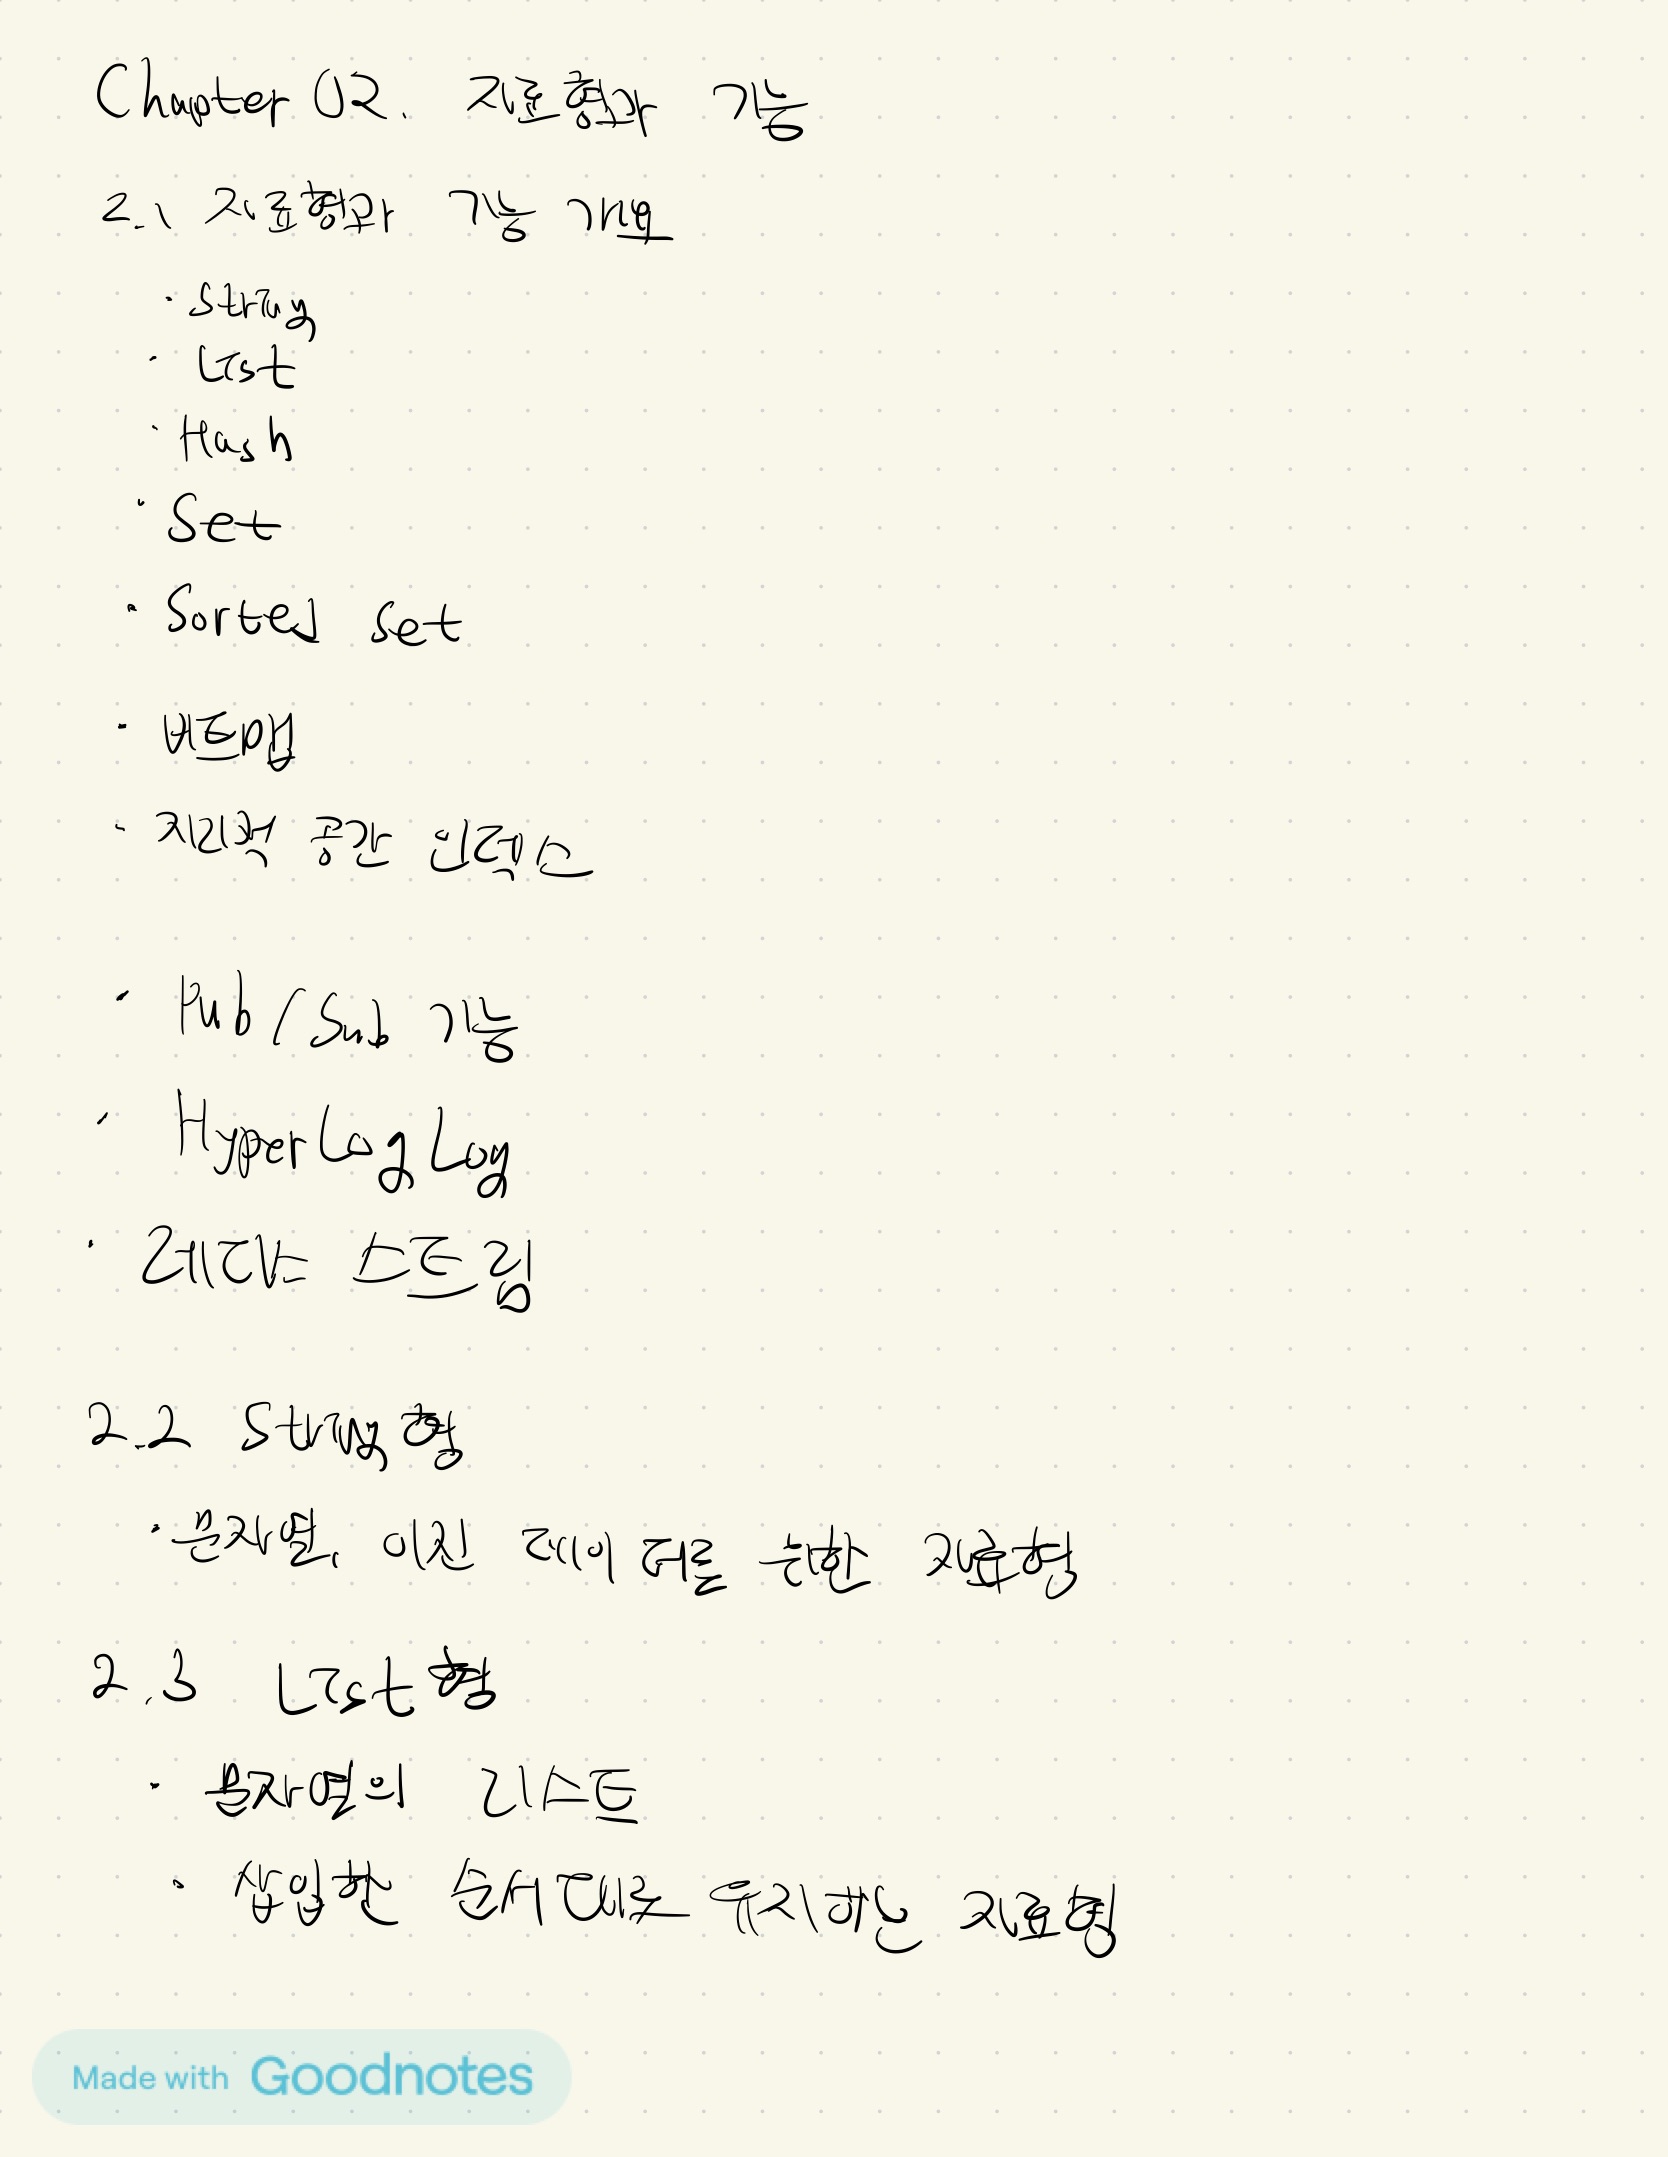 Chapter 02. 자료형과 기능
2.1 자료형과 기능 개요
· String
· List
· Hash
· Set
· Sorted Set
· 비트맵
· 지리적 공간 인덱스
· Pub/Sub 기능
· HyperLogLog
· 레디스 스트림
2.2 String형
· 문자열, 이진 데이터를 위한 자료형
2.3 List형
· 문자열의 리스트
· 삽입한 순서대로 유지하는 자료형
Made with Goodnotes